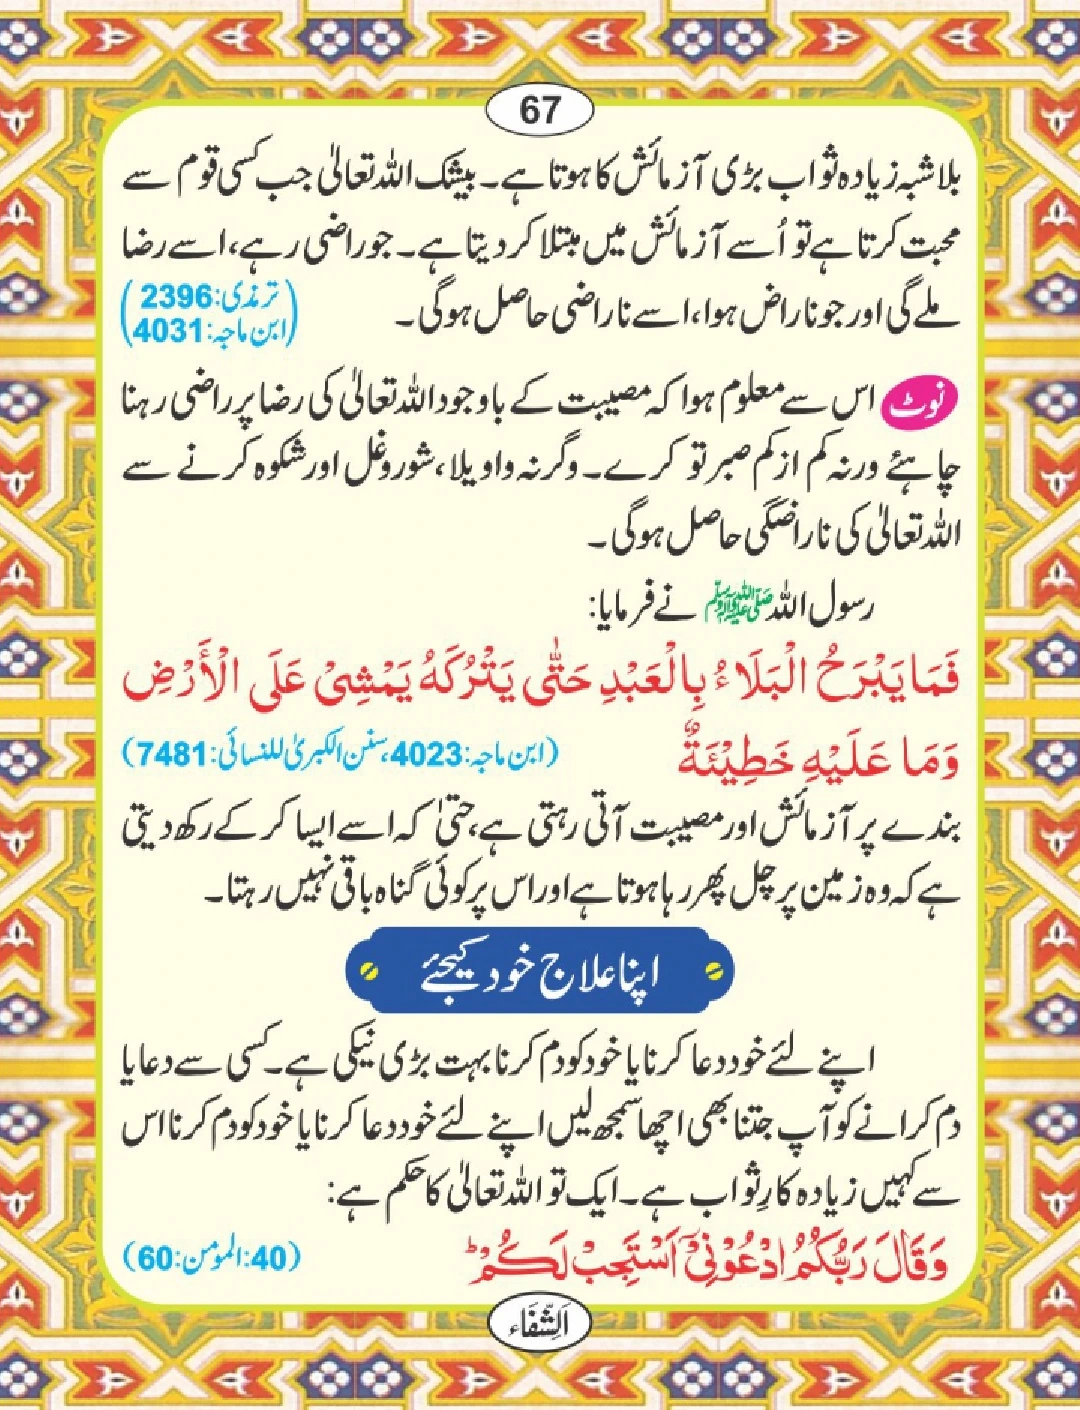 67
بلاشبہ زیادہ ثواب بڑی آزمائش کا ہوتا ہے۔ بیشک اللہ تعالیٰ جب کسی قوم سے
محبت کرتا ہے تو اُسے آزمائش میں مبتلا کر دیتا ہے۔ جو راضی رہے، اسے رضا
ملے گی اور جو ناراض ہوا، اسے ناراضی حاصل ہوگی۔ (ترمذی: 2396
ابن ماجہ: 4031)
نوٹ اس سے معلوم ہوا کہ مصیبت کے باوجود اللہ تعالیٰ کی رضا پر راضی رہنا
چاہئے ورنہ کم از کم صبر تو کرے۔ وگرنہ واویلا، شور و غل اور شکوہ کرنے سے
اللہ تعالیٰ کی ناراضگی حاصل ہوگی۔
رسول اللہ ﷺ نے فرمایا:
فَمَا يَبْرَحُ الْبَلَاءُ بِالْعَبْدِ حَتّٰى يَتْرُكَهُ يَمْشِىْ عَلَى الْأَرْضِ
وَمَا عَلَيْهِ خَطِيْئَةٌ (ابن ماجہ: 4023، سنن الکبریٰ للنسائی: 7481)
بندے پر آزمائش اور مصیبت آتی رہتی ہے، حتیٰ کہ اسے ایسا کر کے رکھ دیتی
ہے کہ وہ زمین پر چل پھر رہا ہوتا ہے اور اس پر کوئی گناہ باقی نہیں رہتا۔
اپنا علاج خود کیجئے
اپنے لئے خود دعا کرنا یا خود کو دم کرنا بہت بڑی نیکی ہے۔ کسی سے دعا یا
دم کرانے کو آپ جتنا بھی اچھا سمجھ لیں اپنے لئے خود دعا کرنا یا خود کو دم کرنا اس
سے کہیں زیادہ کارِ ثواب ہے۔ ایک تو اللہ تعالیٰ کا حکم ہے:
وَقَالَ رَبُّكُمُ ادْعُوْنِىْٓ اَسْتَجِبْ لَكُمْ ط (40: المؤمن: 60)
اَلشِّفَاء